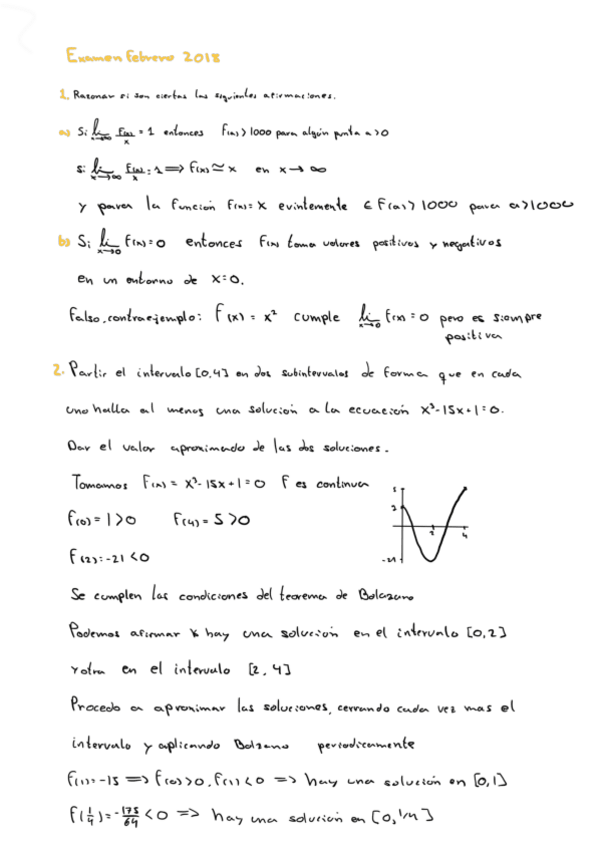 Examen Febrero 2018
1. Razonar si son ciertas las siguientes afirmaciones.
a) Si lim x→∞ F(x)/x = 1 entonces F(a) > 1000 para algún punto a > 0
si lim x→∞ F(x)/x = 1 ⟹ F(x) ≃ x en x → ∞
y para la función F(x) = x evintemente ∈ F(a) > 1000 para a > 1000
b) Si lim x→0 F(x) = 0 entonces F(x) toma valores positivos y negativos
en un entorno de x = 0.
Falso, contraejemplo: F(x) = x² cumple lim x→0 f(x) = 0 pero es siempre
positiva
2. Partir el intervalo [0,4] en dos subintervalos de forma que en cada
uno halla al menos una solución a la ecuación x³-15x+1=0.
Dar el valor aproximado de las dos soluciones.
Tomamos F(x) = x³-15x+1 = 0 F es continua
f(0) = 1 > 0 F(4) = 5 > 0
F(2) = -21 < 0
5
2
-21
2
4
Se cumplen las condiciones del teorema de Bolzano
Podemos afirmar x hay una solución en el intervalo [0,2]
y otra en el intervalo [2,4]
Procedo a aproximar las soluciones, cerrando cada vez mas el
intervalo y aplicando Bolzano periodicamente
f(1) = -15 ⟹ F(0) > 0, F(1) < 0 ⟹ hay una solución en [0,1]
F(1/4) = -175/64 < 0 ⟹ hay una solución en [0,1/4]